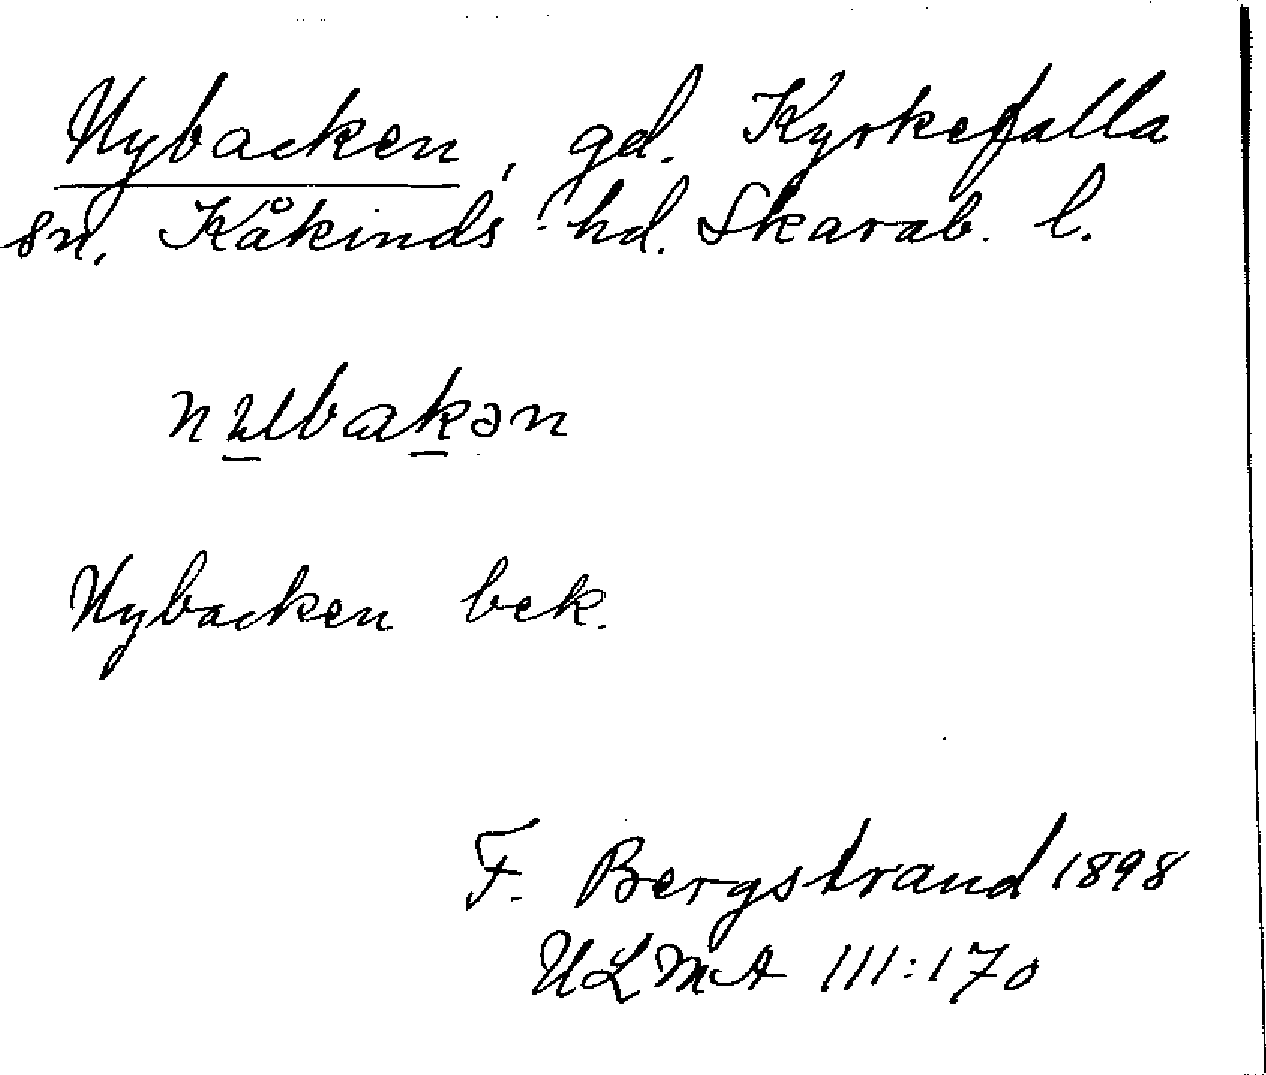 Nybacken, gd. Kyrkefalla
sn, Kåkinds hd. Skarab. l.
Nybacken bek.
F. Bergstrand 1898
ULMA 111:170